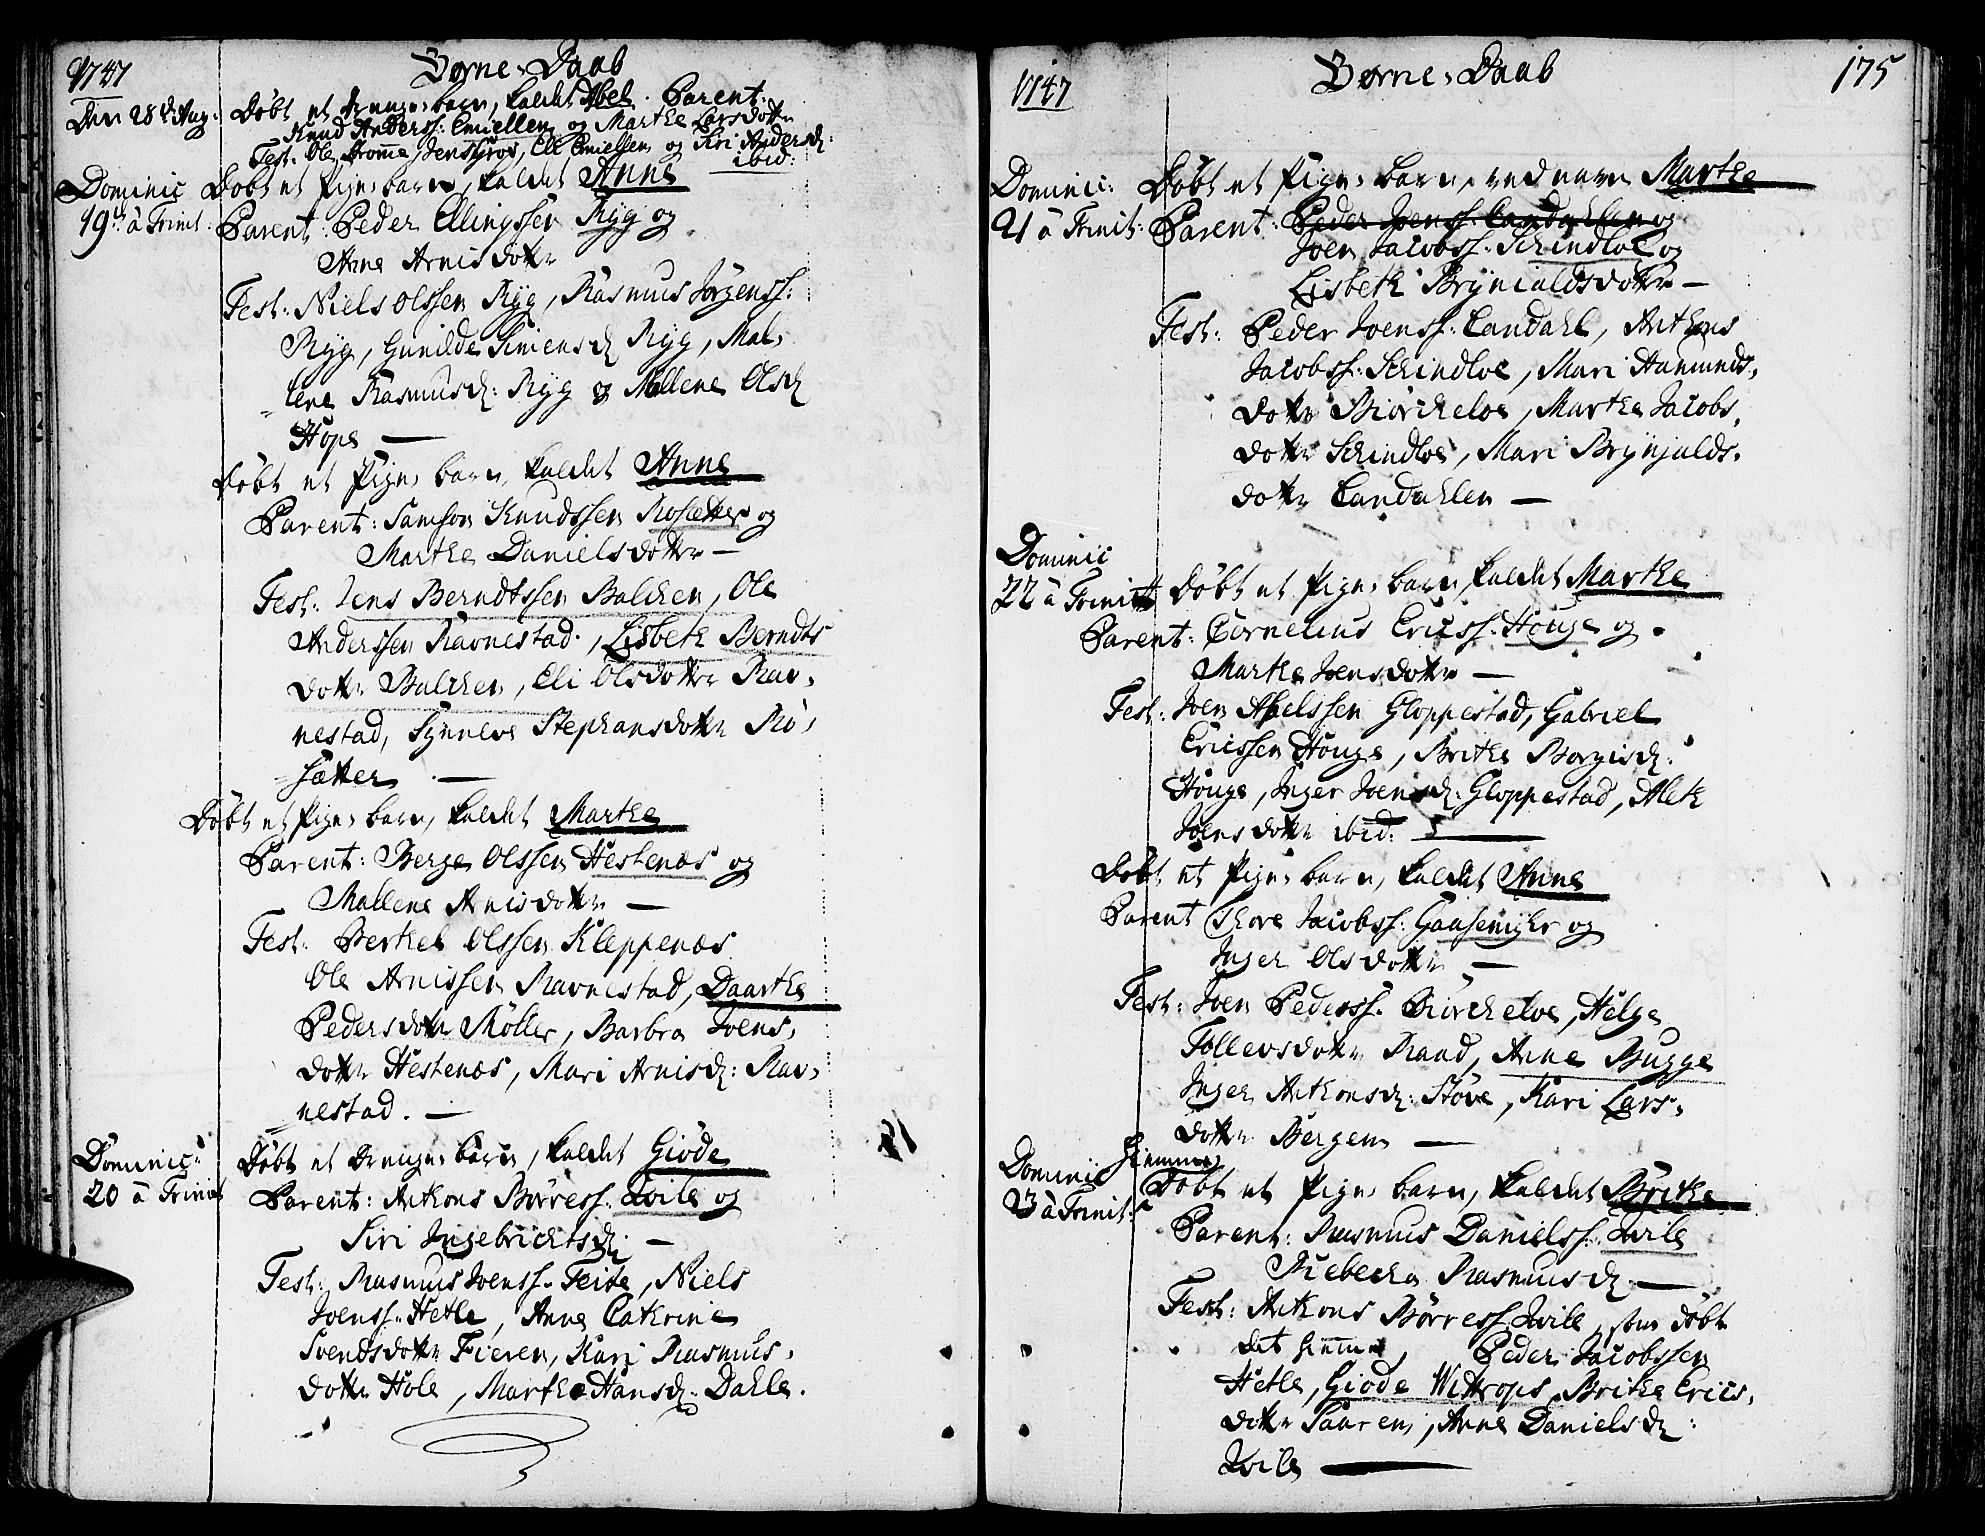 1747
Børne-Daab
Den 28de Aug: Døbt et Drenge-barn, kaldet Abel. Parent:
Knud Anderss: Emiellem og Marthe Larsdotter
Test: Ole Bromme, Jens Grov, Eli Emiellem og Siri Andersd:
ibid:
Dominic Døbt et Pige-barn, kaldet Anne
19de à Trinit. Parent: Peder Ellingssen Ryg og
Anne Arnisdotter
Test: Niels Olssen Ryg, Rasmus Jørgenss:
Ryg, Gunilde Simensd: Ryg, Mal-
lene Rasmusd: Ryg og Mallene Olsd:
Hope —
Døbt et Pige-barn, kaldet Anne
Parent: Samson Knudssen Rosætter og
Marthe Danielsdotter —
Test: Jens Berndtssen Balchen, Ole
Anderssen Ravnestad, Lisbeth Berndts
dotter Balchen, Eli Olsdotter Rav-
nestad, Synneve Stephansdotter Rø-
sætter —
Døbt et Pige-barn, kaldet Marthe
Parent: Berge Olssen Hestenæs og
Mallene Arnisdotter —
Test: Berthel Olssen Kleppenæs
Ole Arnissen Ravnestad, Daarthe
Pedersdotter Møller, Barbra Joens-
dotter Hestenæs, Mari Arnisd: Rav-
nestad. —
Dominic: Døbt et Drenge-barn, kaldet Giöde
20 à Trinit Parent: Anthons Børress: Lvile og
Siri Ingebrichtsd: —
Test: Rasmus Joenss: Feite, Niels
Joenss: Hetle, Anne Cathrine
Svendsdotter Fieren, Kari Rasmus-
dotter Hole, Marthe Hansd: Dahle.
1747
Børne-Daab
175
Dominic: Døbt et Pige-barn, ved navn Marthe
21 à Trinit: Parent: Peder Joenss: Eandahlen og
Joen Jacobss: Schindloe og
Lisbeth Brynialdsdotter —
Test: Peder Joenss: Eandahl, Anthons
Jacobss: Schindloe, Mari Hanmunds-
dotter Biørcheloe, Marthe Jacobs-
dotter Schindloe, Mari Brynjalds-
dotter Eandahlen —
Dominic
22 à Trinit Døbt et Pige-barn, kaldet Marthe
Parent: Cornelius Ericss: Houge og
Marthe Joensdotter —
Test: Joen Abelssen Gloppestad, Gabriel
Ericssen Houge, Brithe Borgisd:
Houge, Inger Joensd: Gloppestad, Aleth
Joensdotter ibid: —
Døbt et Pige-barn, kaldet Anne
Parent Thore Jacobss: Gaasemyhr og
Inger Olsdotter —
Test: Joen Pederss: Biørcheloe, Helge
Tollevsdotter Raad, Anne Bugge
Inger Anthonsd: Støve, Kari Lars-
dotter Bergen —
Dominic hiemme
23 à Trinit: Døbt et Pige-barn, kaldet Brithe
Parent: Rasmus Danielss: Lvile
Rebecha Rasmusd: —
Test: Anthons Børress: Lvile, som døbt
det hiemme, Peder Jacobssen
Hetle, Giöde Wittrops, Brithe Erics-
dotter Saaren, Anne Danielsd:
Lvile —